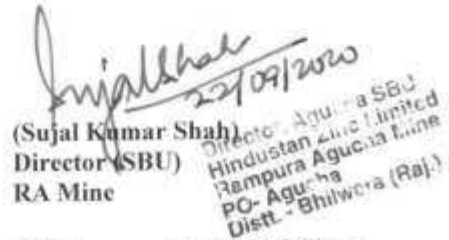 SujalShah
22/09/2020
(Sujal Kumar Shah)
Director (SBU)
RA Mine
Director Agucha SBU
Hindustan Zinc Limited
Rampura Agucha Mine
PO- Agucha
Distt. - Bhilwara (Raj.)